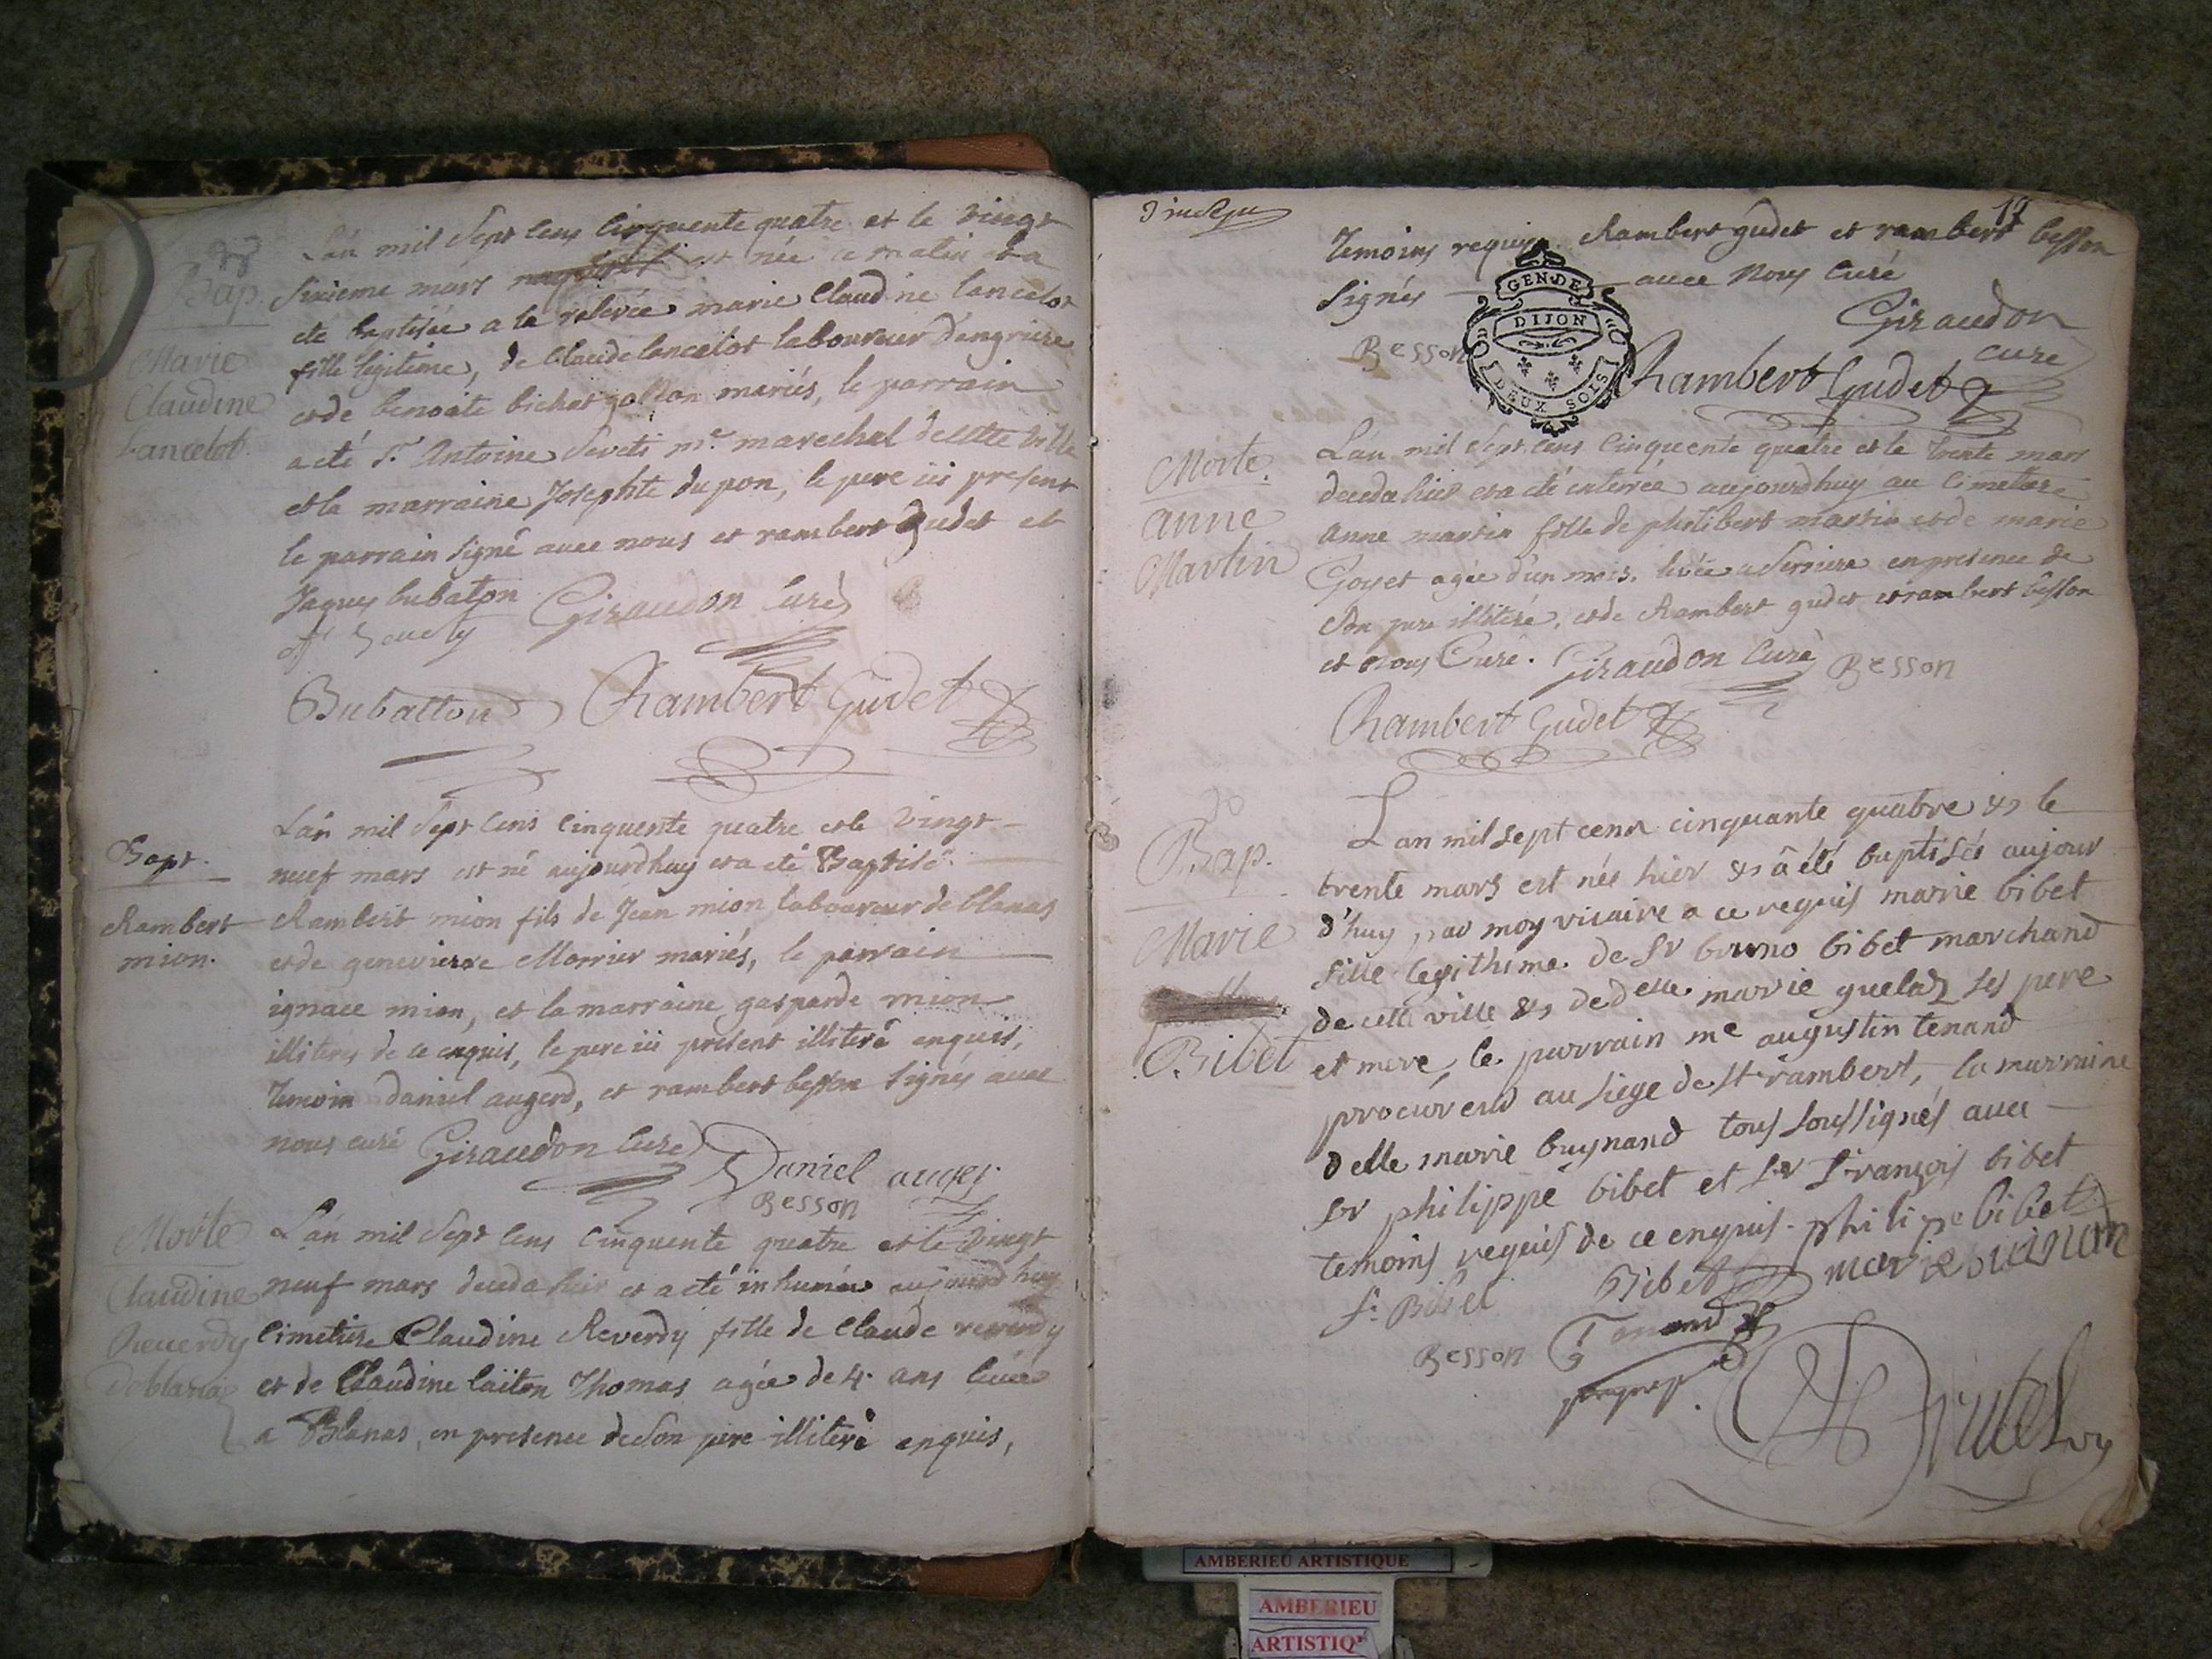 Bap.
Marie
Claudine
Lancelot.
L'an mil Sept Cens Cinquente quatre et le vingt
sixieme mars est née ce matin et a
eté baptisée a la relevée marie Claudine lancelot
fille legitime, de Claude lancelot laboureur d'angriere
et de benoite bichat mariés, le parrain
a eté Sr. Antoine me. marechal de cette ville
et la marraine Josephte dupon, le pere ici present
le parrain signé avec nous et rambert gudet et
Jaques bubaton Giraudon Curé
Bubatton Rambert Gudet
Bapt.
Rambert
mion.
L'an mil Sept Cens Cinquente quatre et le vingt
neuf mars est né aujourdhuy et a eté Baptisé
Rambert mion fils de Jean mion laboureur de blanas
et de genevieve Morrier mariés, le parrain
ignace mion, et la marraine gasparde mion
illiteres de ce enquis, le pere ici present illiteré enquis,
Temoin daniel augerd, et rambert besson signés avec
nous curé Giraudon Curé Daniel auger
Besson
Morte
Claudine
Reverdy
de blanas
L'an mil Sept Cens Cinquente quatre et le vingt
neuf mars deceda hier et a eté inhumée aujourdhuy
Cimetiere Claudine Reverdy fille de Claude reverdy
et de Claudine laiton Thomas agée de 4. ans
a Blanas, en presence de son pere illiteré enquis,
17
Temoins requis Rambert gudet et rambert besson
signés avec nous Curé
GEN. DE
DIJON
DEUX SOLS
Besson Giraudon
curé
Rambert Gudet
Morte
anne
Martin
L'an mil Sept Cens Cinquente quatre et le trente mars
deceda hier et a eté enterrée aujourdhuy au Cimetiere
anne martin fille de philibert martin et de marie
Goyet agée d'un mois, a Serriere en presence de
son pere illiteré, et de Rambert gudet et rambert besson
et nous Curé. Giraudon Curé Besson
Rambert Gudet
Bap.
Marie
Bibet
L'an mil sept cens cinquante quatre & le
trente mars est née hier & â été baptisés aujour
d'huy par moy vicaire a ce requis marie bibet
fille legithime de Sr bruno bibet marchand
de cette ville & de delle marie guelaz ses pere
et mere, le parrain me augustin tenand
procureur au siege de St rambert, la marraine
delle marie buynand tous soussignés avec
sr philippe bibet et sr François bibet
temoins requis de ce enquis. philipe bibet
f. Bibet Bibet marie buinand
Besson Tenand
AMBERIEU ARTISTIQUE
AMBERIEU
ARTISTIQ